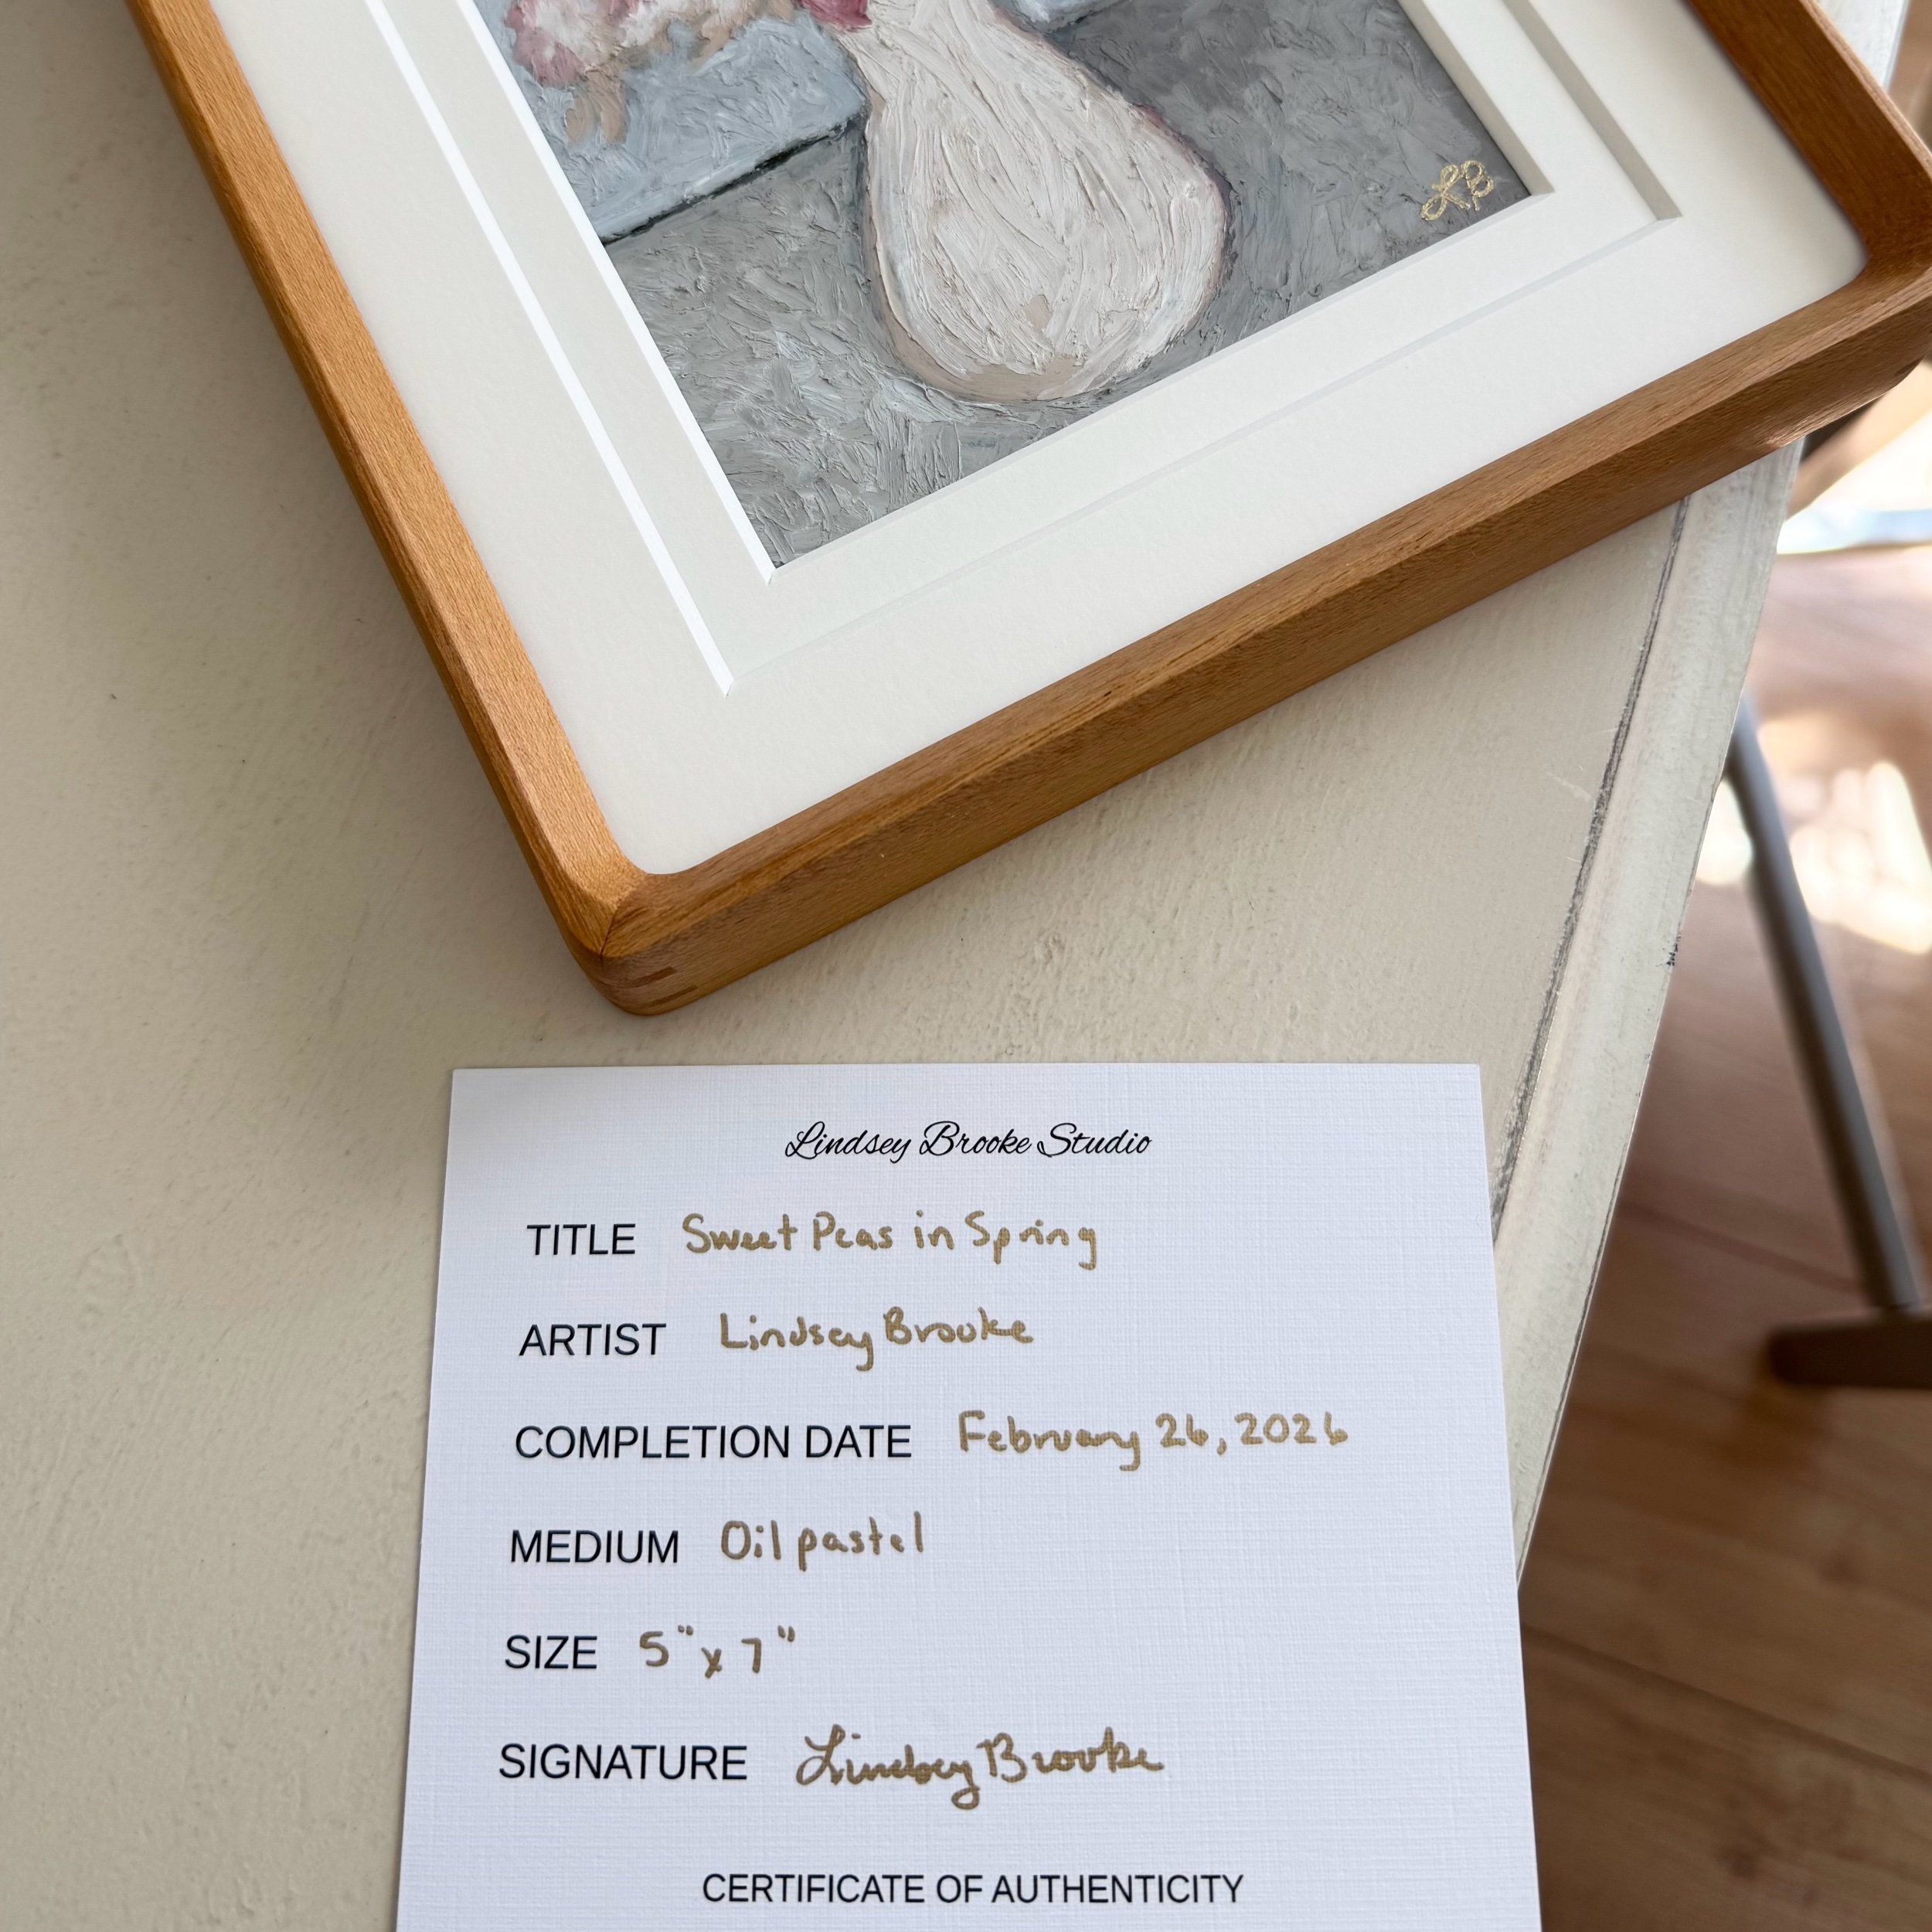 LB
Lindsey Brooke Studio
TITLE Sweet Peas in Spring
ARTIST Lindsey Brooke
COMPLETION DATE February 26, 2026
MEDIUM Oil pastel
SIZE 5" x 7"
SIGNATURE Lindsey Brooke
CERTIFICATE OF AUTHENTICITY